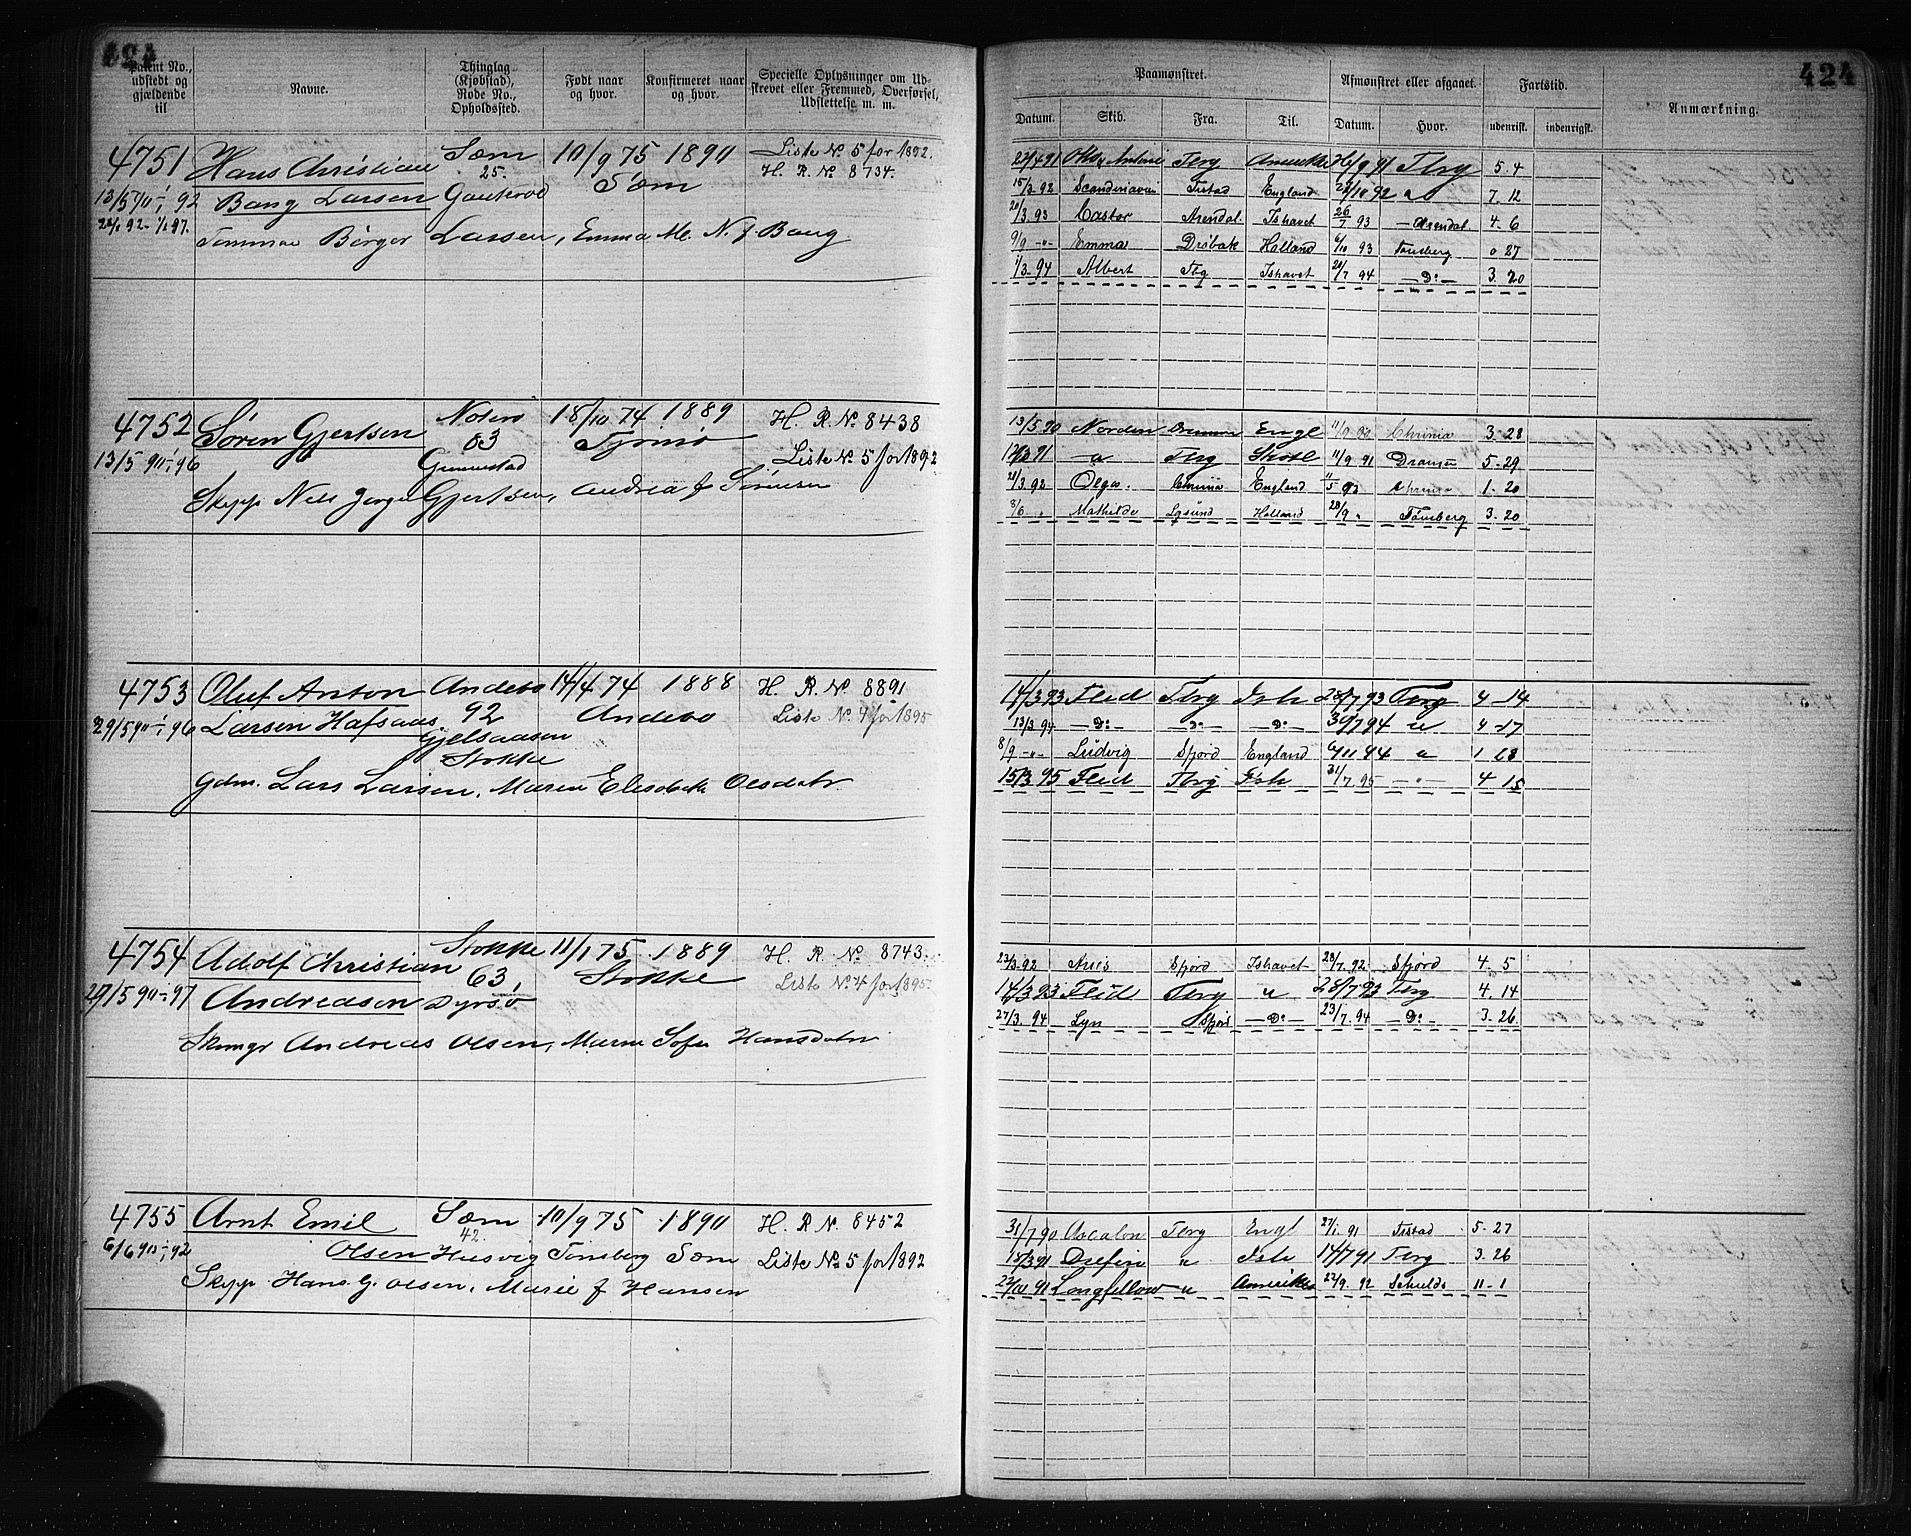 424
Patent No., udstedt og gjældende til
Navne.
Thinglag (Kjøbstad), Rode No., Opholdssted.
Født naar og hvor.
Konfirmeret naar og hvor.
Specielle Oplysninger om Udskrevet eller Fremmed, Overførsel, Udslettelse m. m.
4751 Hans Christian Sæm 10/9 75 1890 Liste No 5 for 1892.
25. Sæm H. R. No 8734.
13/5 90-1/1 92 Bang Larsen
Tømmm Børger Larsen, Emma M. N. f. Bang
4752 Søren Gjertsen 18/10 74 1889 H. R. No 8438
63 Tjømø
13/5 90-1/1 96 Gunnestad Liste No 5 for 1892
Skipp Nils Jørgen Gjertsen, Andrea f Sørensen
4753 Oluf Anton Andebo 14/4 74 1888 H. R. No 8891
29/5 90-1/1 96 Larsen Hafsaas 92 Andebo Liste No 4 for 1895
Gjelsaasen
Stokke
Gdm. Lars Larsen, Maren Elisabeth Olsdatr
4754 Adolf Christian Stokke 11/1 75 1889 H. R. No 8743.
63, Stokke Liste No 4 for 1895
27/5 90-1/1 97 Andreasen Dyrsø
Andreas Olsen, Maren Sofie Hansdatr
4755 Arnt Emil Sæm 10/9 75 1890 H. R. No. 8452
42.
6/6 90-1/1 92 Olsen Husvig Tønsberg Sæm Liste No 5 for 1892
Skipp Hans G. Olsen, Marie f Hansen
424
Paamønstret.
Afmønstret eller afgaaet.
Fartstid.
Anmærkning.
Datum. Skib. Fra. Til. Datum. Hvor. udenrigs. indenrigs.
Tbrg Amerika Tbrg 5 4
15/3 92 Scandinavien Fristad England 92 7. 12
20/3 93 Castor Arendal Ishavet 26/7 93 Arendal. 4. 6
9/9 -"- Emma Drøbak Holland 6/10 93 Tønsberg 0 27
1/3 94 Albert Tbg Ishavet 20/7 94 —Do— 3. 20
13/5 90 Norden Drammen Engl 11/9 90 Chrinia 3. 28
91 " Tbrg 11/9 91 Dramen 5. 29
21/3. 92 Olga. Chrinia England Chrinia 1. 20
8/6 " Mathilde Lysund Holland 28/9 " Tønsberg 3. 20
14/3 93 Flid Tbrg Ish 28/7 93 Tbrg 4 14
13/3 94 —Do— —Do— —Do— 30/7 94 " 4 17
8/9 -"- Ludvig Sfjord England 94 " 1 23
15/3 95 Flid Tbrg Ish 31/7. 95 -"- 4 15
23/3. 92 Aries Sfjord Ishavet 28/7. 92 Sfjord 4. 5
14/3 93 Flid Tbrg " 28/7 93 Tbrg 4. 14
27/3. 94 Lyn Sfjord —Do— 23/7. 94 —Do— 3. 26
31/7 90 Ascalon Tbrg Engl 27/1. 91 Fristad 5. 27
14/3 91 Delfin " Ish 14/7 91 Tbrg 3. 26
27/10 91 Longfellow " Amerika 27/9. 92 11. 1